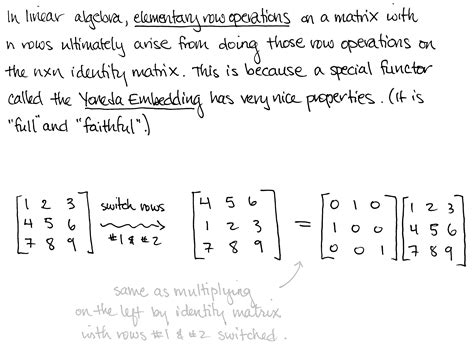 In linear algebra, elementary row operations on a matrix with
n rows ultimately arise from doing those row operations on
the n×n identity matrix. This is because a special functor
called the Yoneda Embedding has very nice properties. (It is
"full" and "faithful".)
[1 2 3] switch rows [4 5 6] = [0 1 0] [1 2 3]
[4 5 6] #1 & #2 [1 2 3] [1 0 0] [4 5 6]
[7 8 9] [7 8 9] [0 0 1] [7 8 9]
same as multiplying
on the left by identity matrix
with rows #1 & #2 switched.